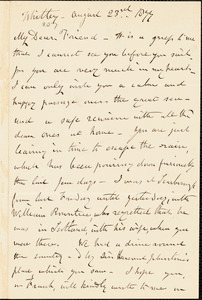 Whitby - August 23rd. 1877
My Dear Friend - It is a grief to me
that I cannot see you before you sail
for you are very much in my heart.
I can only wish you a calm and
happy passage over the great sea
and a safe reunion with all the
dear ones at home - You are just
leaving in time to escape the rain,
which has been pouring down furiously
the last few days - I was at Scarborough
from last Friday until yesterday, with
William Rowntree who regretted that he
was in Scotland, with his wife, when you
were there. We had a drive round
the country - by Sir Harcourt Johnstone's
place which you saw - I hope you,
or Frank, will kindly write to me on